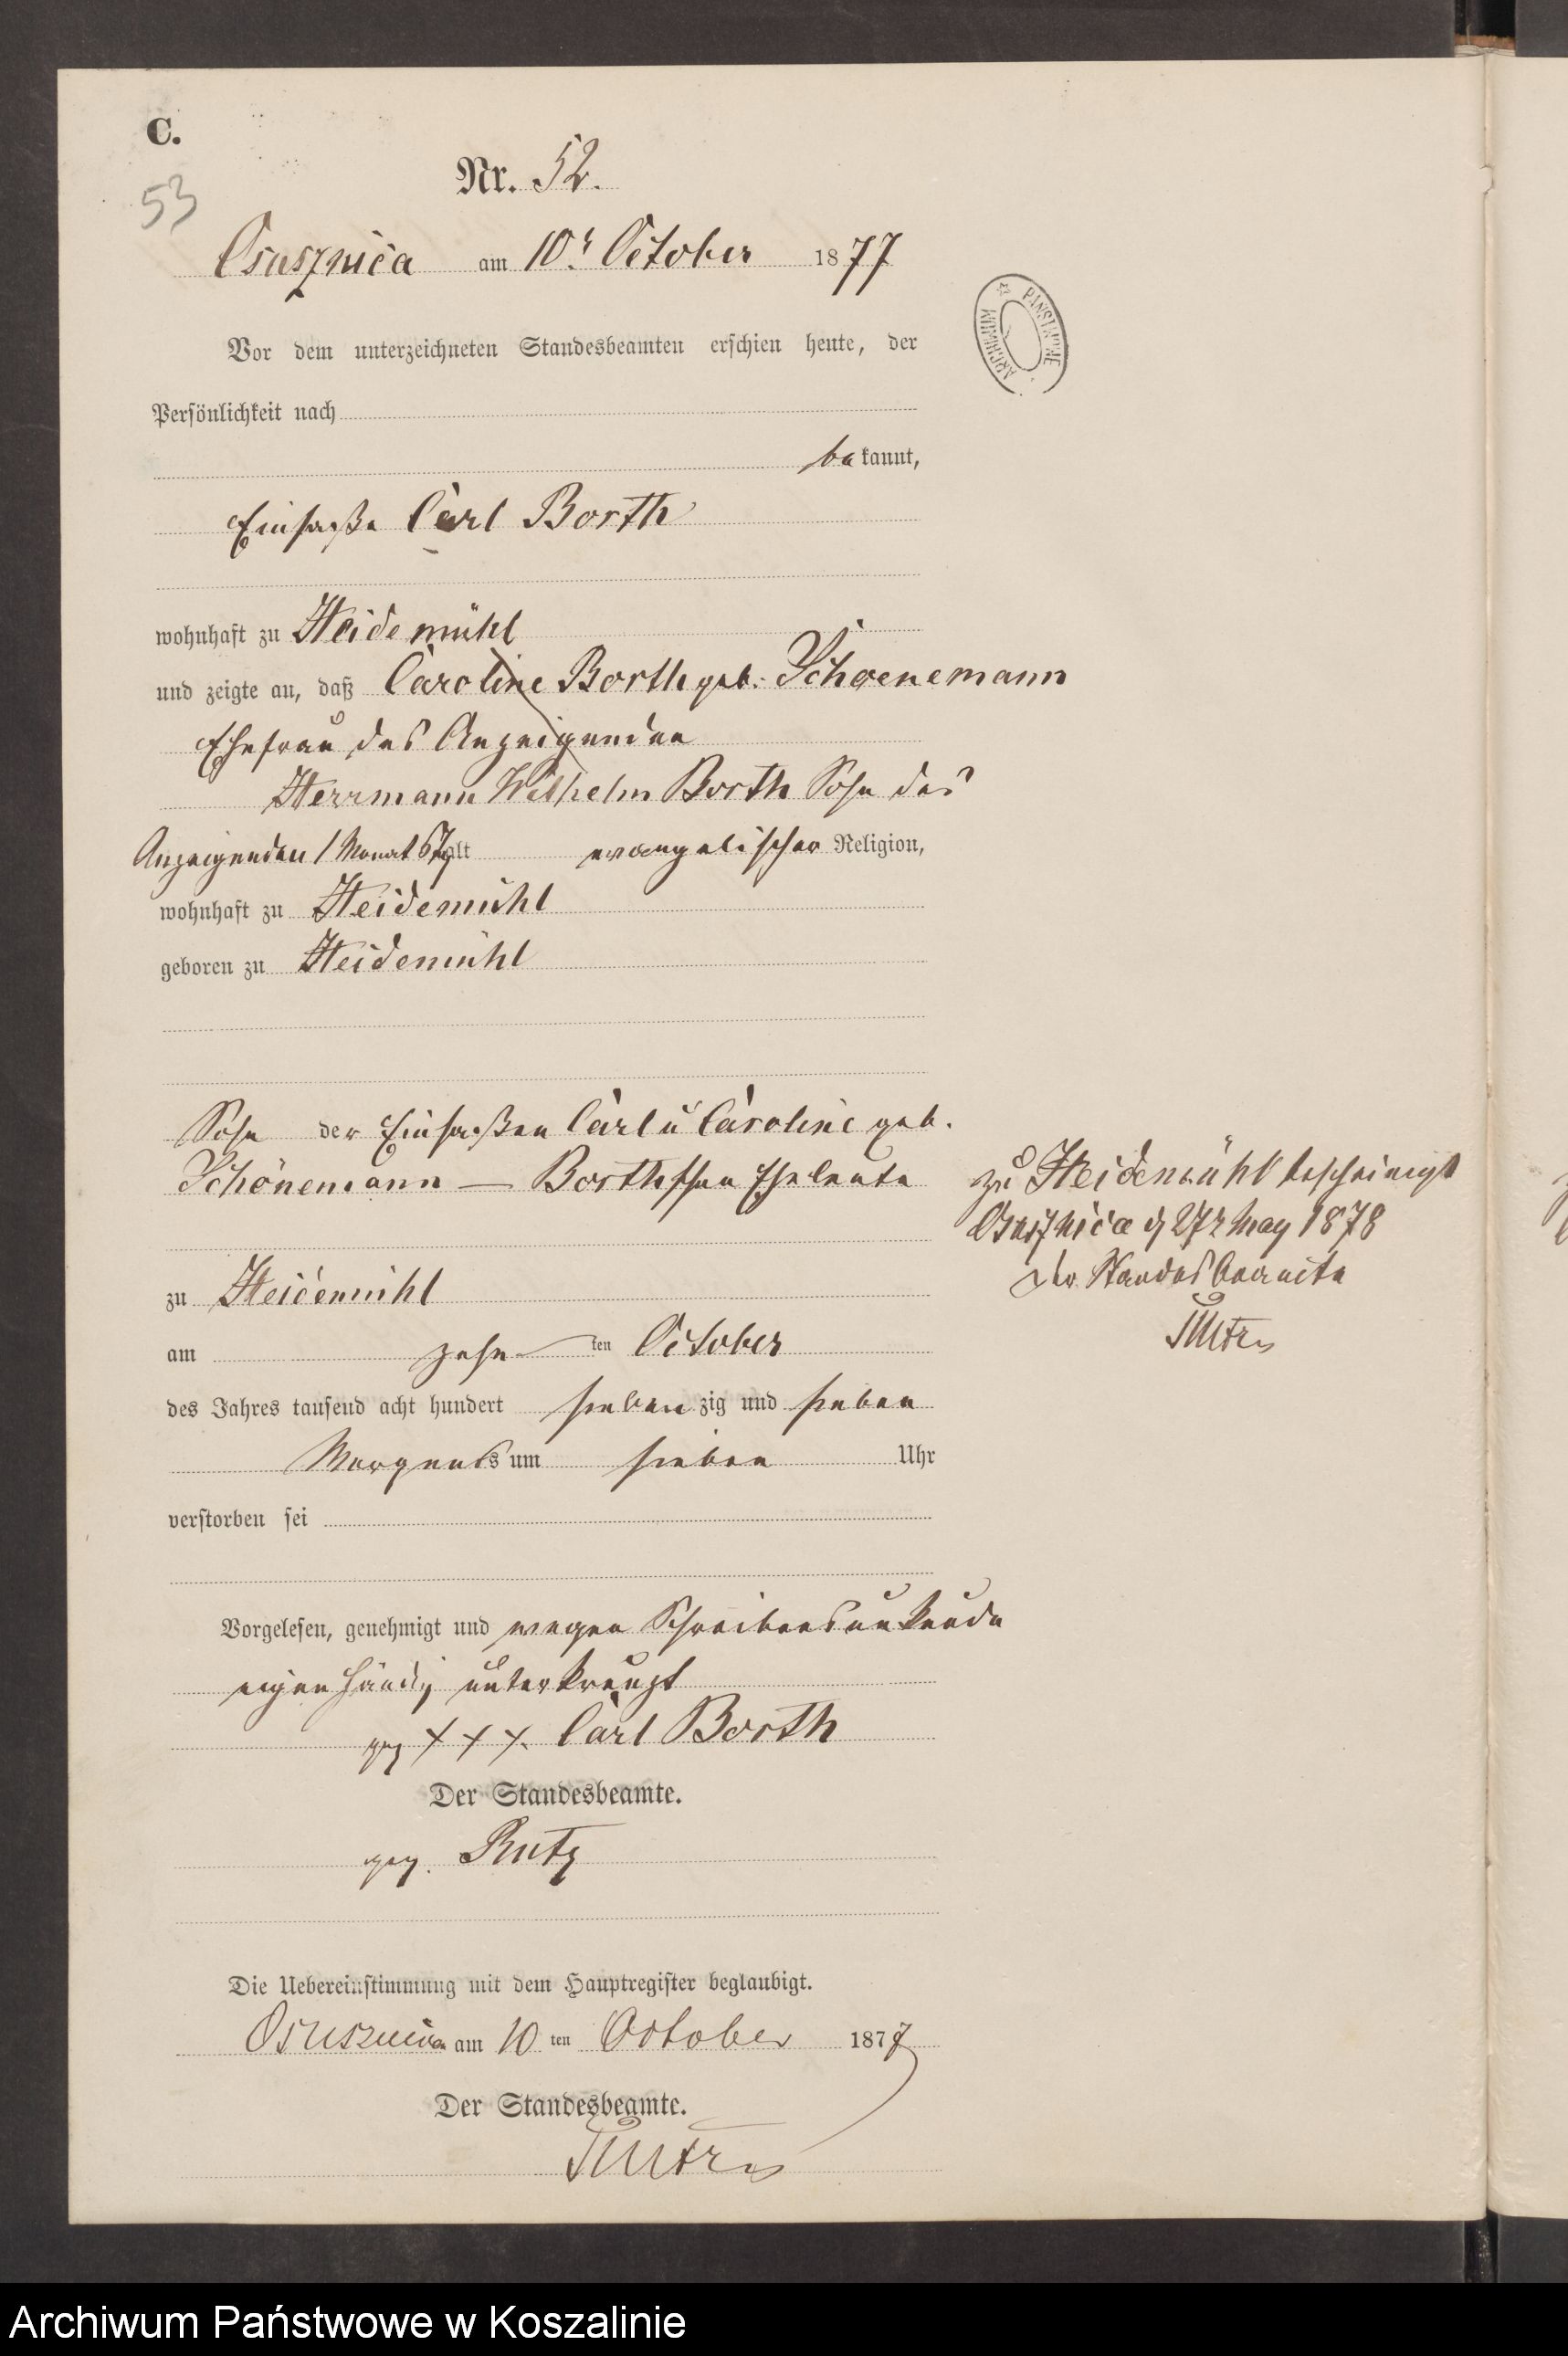 C.
Nr. 52.
53
Osusznica am 10t. October 1877
ARCHIWUM PAŃSTWOWE
Vor dem unterzeichneten Standesbeamten erschien heute, der
Persönlichkeit nach
bekannt,
Einsaße Carl Borth
wohnhaft zu Heidemühl
und zeigte an, daß Caroline Borth geb. Schoenemann
Ehefrau des Anzeigenden
Herrmann Wilhelm Borth Sohn des
Anzeigenden 1 Monat alt evangelischer Religion,
wohnhaft zu Heidemühl
geboren zu Heidemühl
Sohn der Einsaßen Carl u Caroline geb.
Schönemann — Borthschen Eheleute
zu Heidemühl bescheinigt
Osusznica 27 May 1878
Der Standesbeamte
zu Heidemühl
am zehnten October
des Jahres tausend acht hundert siebenzig und sieben
Morgens um sieben Uhr
verstorben sei
Vorgelesen, genehmigt und wegen Schreibensunkunde
eigenhändig unterkreuzt
gez + + +. Carl Borth
Der Standesbeamte.
gez. Rutz
Die Uebereinstimmung mit dem Hauptregister beglaubigt.
Osusznica am 10ten October 1877
Der Standesbeamte.
Archiwum Państwowe w Koszalinie